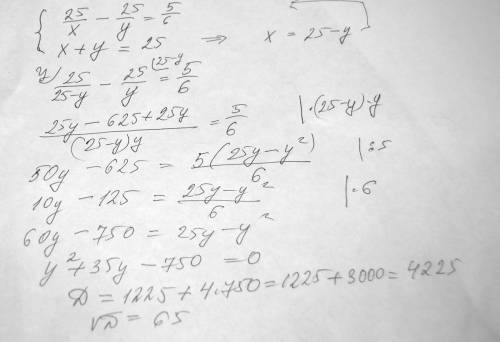 { 25/x - 25/y = 5/6
x + y = 25 ⇒ x = 25-y
y) 25/(25-y) - 25/y (25-y = 5/6
(25y - 625 + 25y)/((25-y)y) = 5/6 |·(25-y)·y
50y - 625 = 5(25y-y²)/6 |:5
10y - 125 = (25y-y²)/6 |·6
60y - 750 = 25y-y²
y² + 35y - 750 = 0
D = 1225 + 4·750 = 1225 + 3000 = 4225
√D = 65